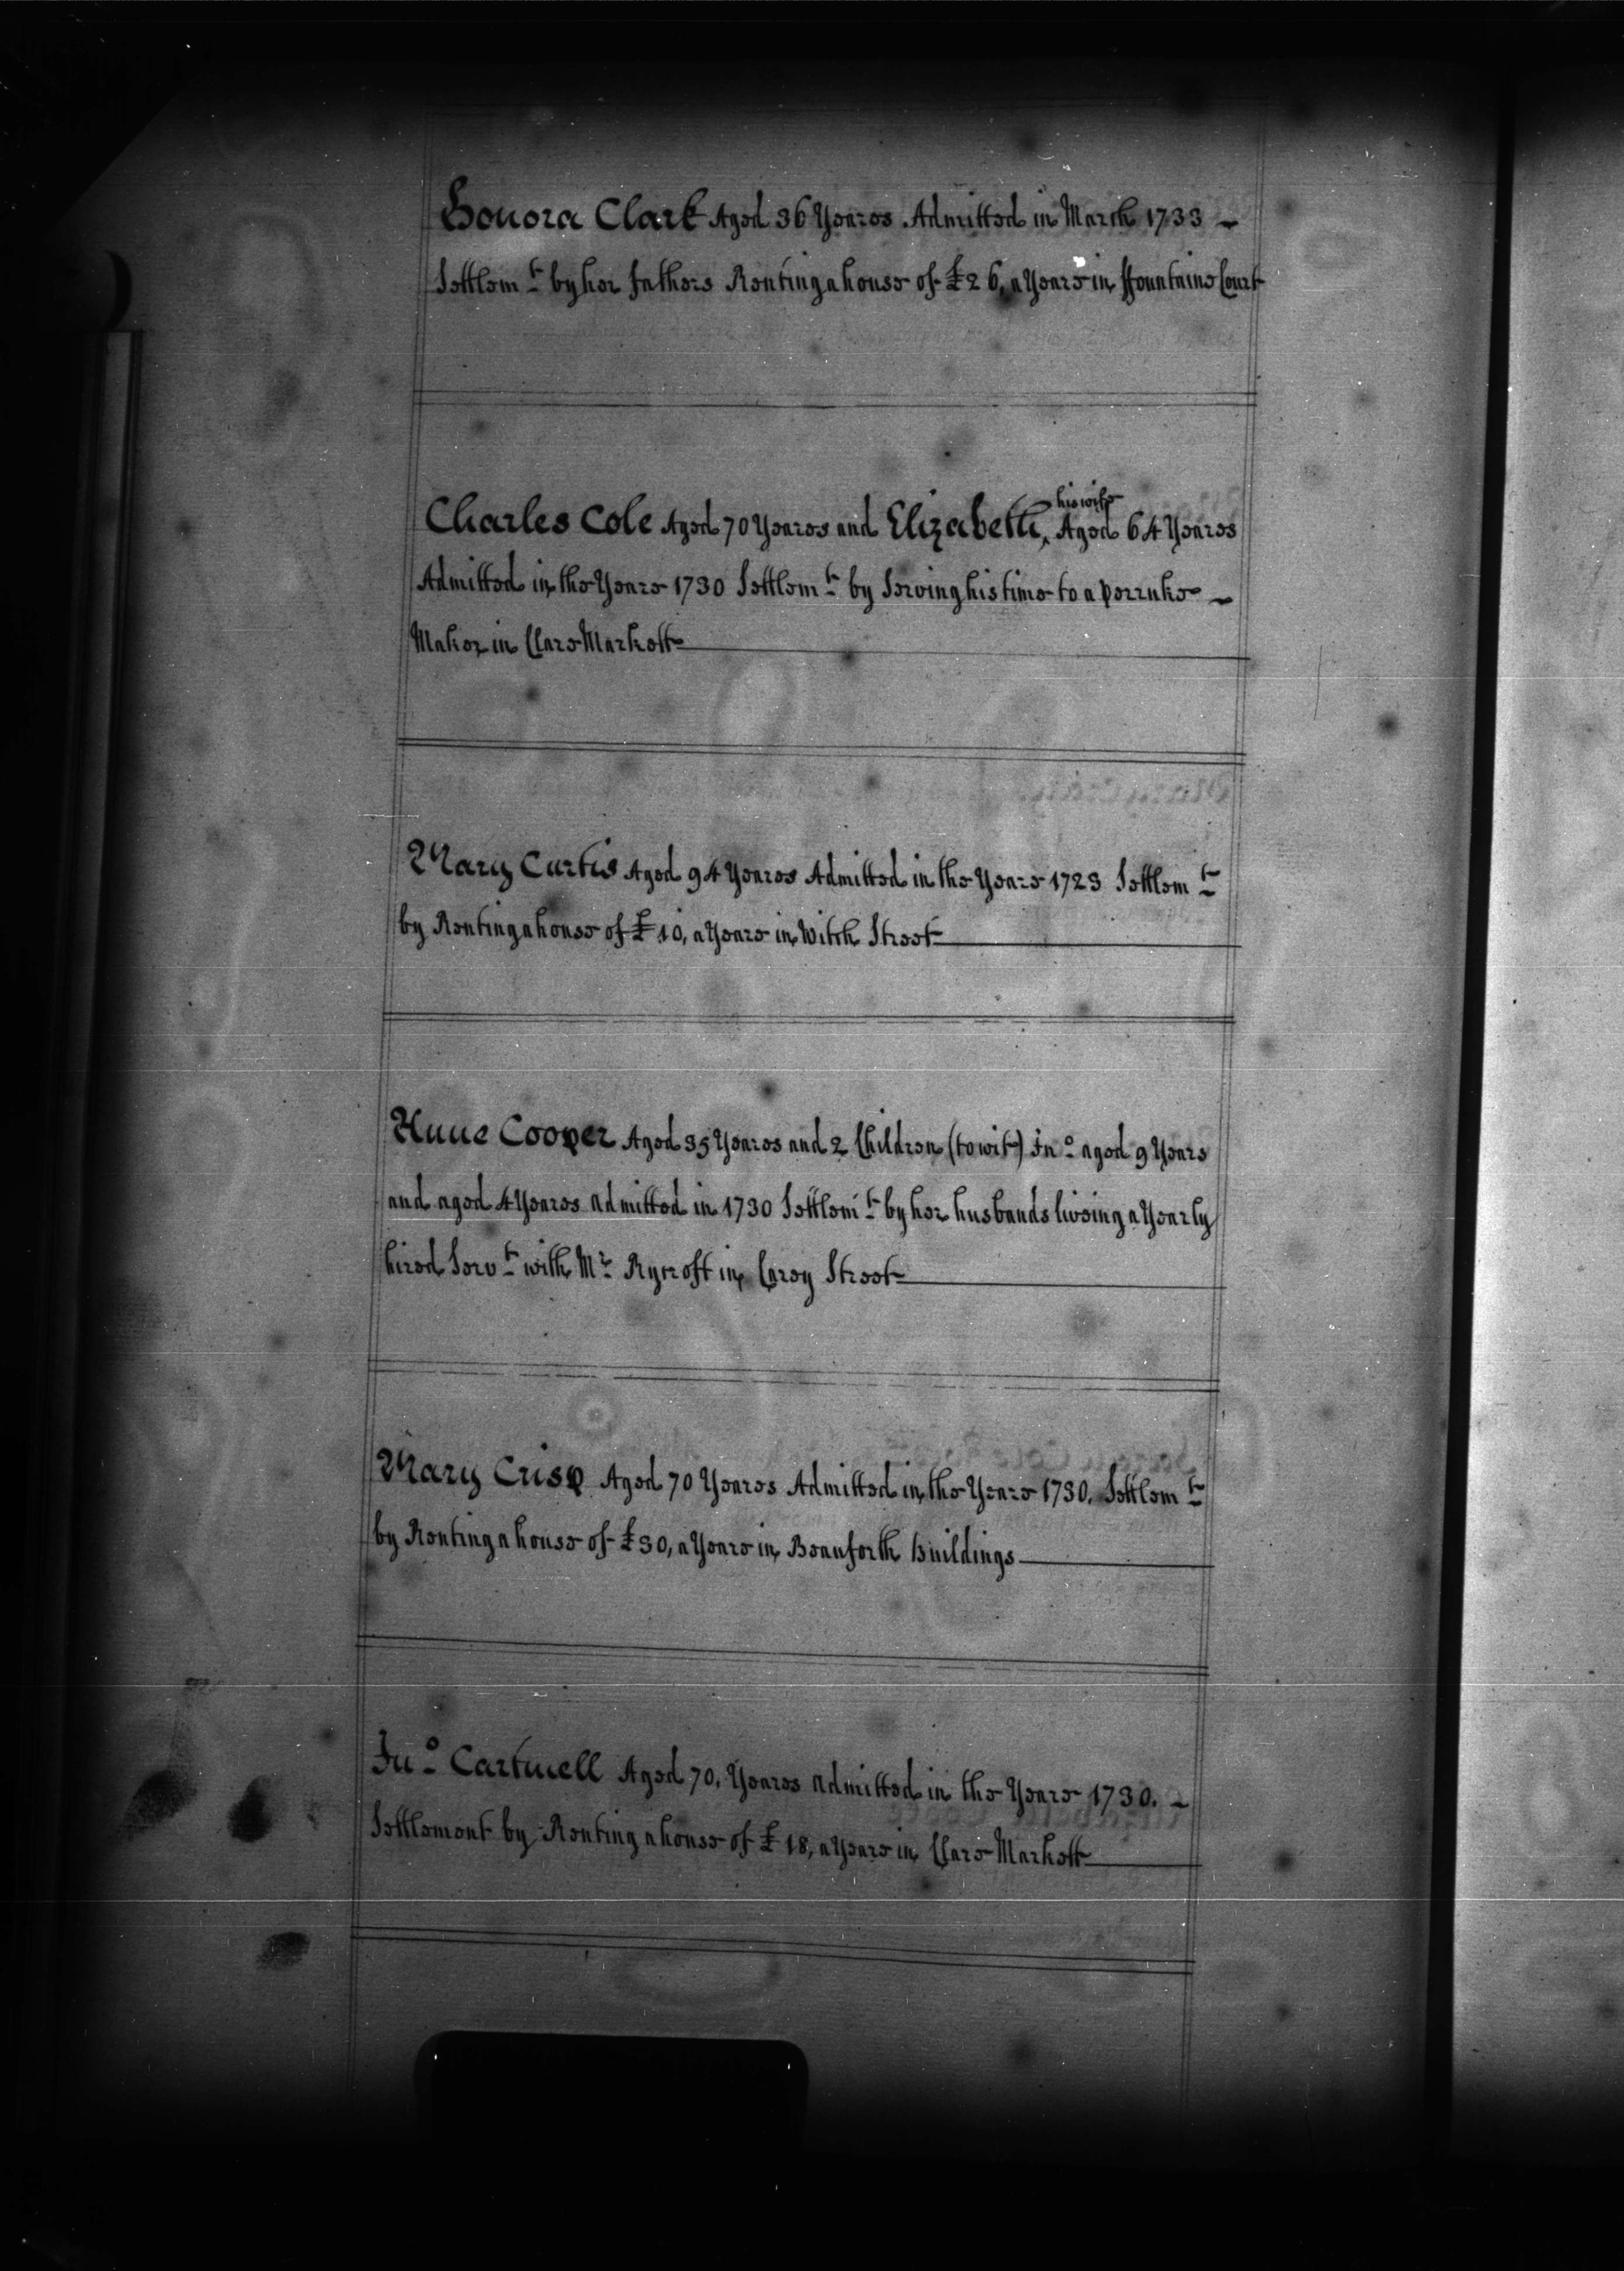 Honora Clark Aged 36 Yeares Admitted in March 1733
Settlem.t by her fathers Renting a house of £26, a Yeare in Ffountaine Court
his wife
Charles Cole Aged 70 Yeares and Elizabeth, Aged 64 Yeares
Admitted in the Yeare 1730 Settlem.t by Serving his time to a Perruke
Maker in Clare Markett
Mary Curtis Aged 94 Yeares Admitted in the Yeare 1723 Settlem.t
by Renting a house of £10, a Yeare in Witch Street
Anne Cooper Aged 35 Yeares and 2 Children (to wit) Jn.o aged 9 Years
and aged 4 Yeares admitted in 1730 Settlem.t by her husbands liveing a Yearly
hired Serv.t with M.r Rycroft in Carey Street
Mary Crisp Aged 70 Yeares Admitted in the Yeare 1730. Settlem.t
by Renting a house of £30, a Yeare in Beauforth Buildings
Jn.o Cartwell Aged 70, Yeares admitted in the Yeare 1730.
Settlement by Renting a house of £18, a Yeare in Clare Markett